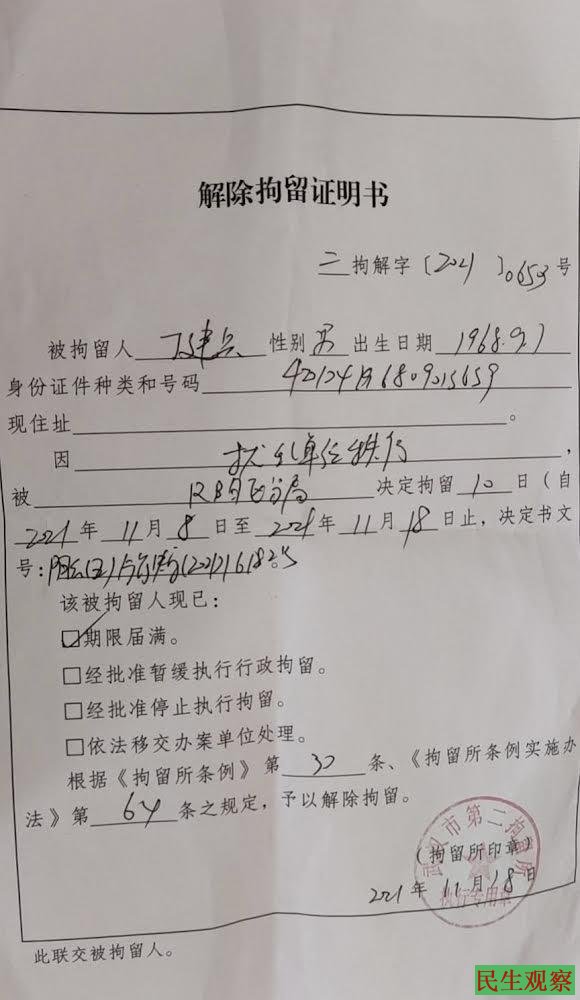 解除拘留证明书
三拘解字〔2021〕0653号
被拘留人 性别 男 出生日期 1968.9.1
身份证件种类和号码
现住址。
因 扰乱单位秩序,
被 分局 决定拘留 10 日（自
2021年 11月 8 日至 2021年 11月 18日止，决定书文
号：
该被拘留人现已：
☑期限届满。
□经批准暂缓执行行政拘留。
□经批准停止执行拘留。
□依法移交办案单位处理。
根据《拘留所条例》第 30 条、《拘留所条例实施办
法》第 64 条之规定，予以解除拘留。
武汉市第二拘留所
（拘留所印章）
执行专用章
2021年 11月18日
此联交被拘留人。
民生观察